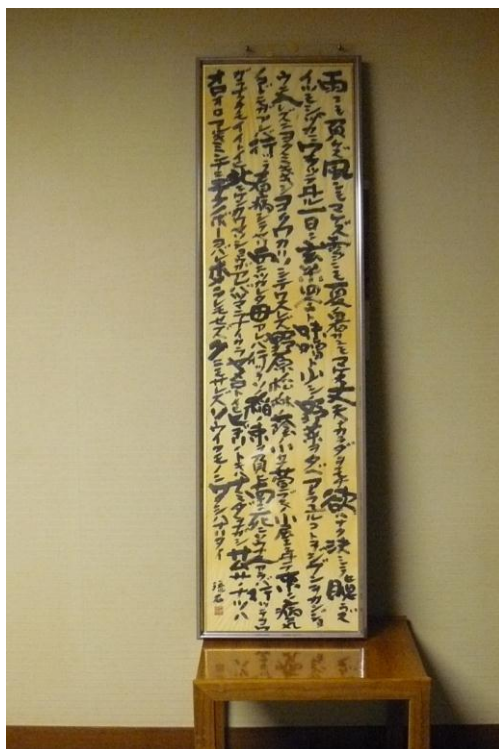 雨ニモ負ケズ風ニモマケズ雪ニモ夏ノ暑サニモマケヌ丈夫ナカラダヲモチ欲ハナク決シテ瞋ラズ
イツモシヅカニワラッテヰル一日ニ玄米四合ト味噌ト少シノ野菜ヲタベアラユルコトヲジブンヲカンジョ
ウニ入レズニヨクミキキシヨクワカリソシテワスレズ野原ノ松ノ林ノ蔭ノ小サナ萱ブキノ小屋ニヰテ東ニ病気
ノコドモアレバ行ッテ看病シテヤリ西ニツカレタ母アレバ行ッテソノ稲ノ束ヲ負ヒ南ニ死ニサウナ人アレバ行ッテコワ
ガラナクテモイイトイヒ北ニケンクヮヤソショウガアレバツマラナイカラヤメロトイヒヒデリノトキハナミダヲナガシサムサノナツハ
オロオロアルキミンナニデクノボートヨバレホメラレモセズクニモサレズソウイウモノニワタシハナリタイ